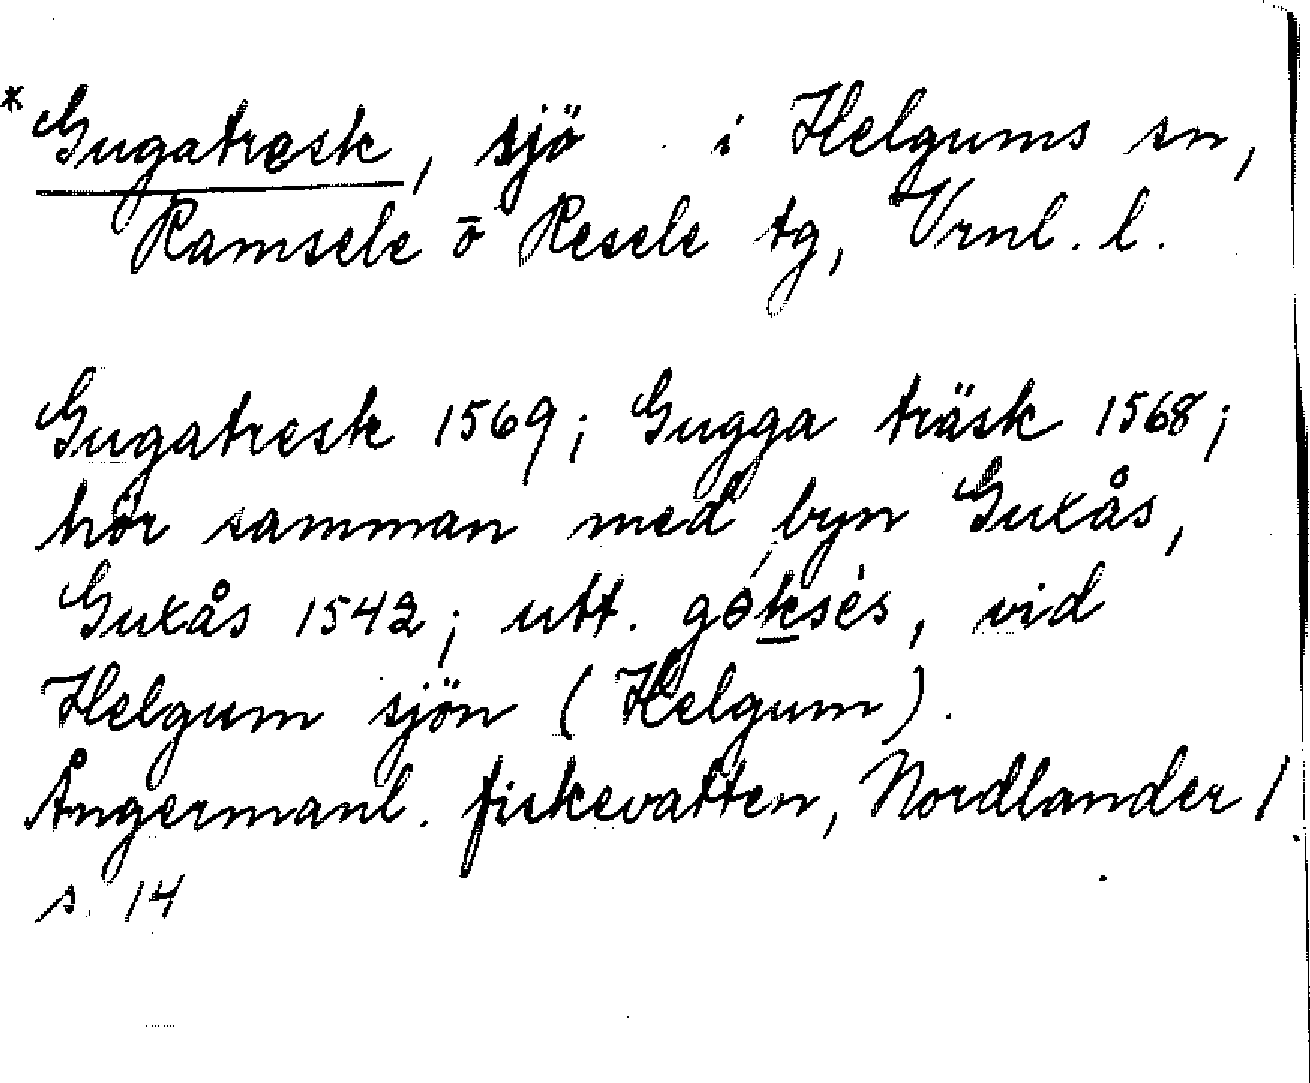 *Gugatresk, sjö i Helgums sn,
Ramsele o Resele tg, Vrnl. l.
Gugatresk 1569; Gugga träsk 1568;
hör samman med byn Guxås,
Guxås 1542; utt. gǿksès, vid
Helgum sjön (Helgum).
Ångermanl. fiskevatten, Nordlander 1
s. 14